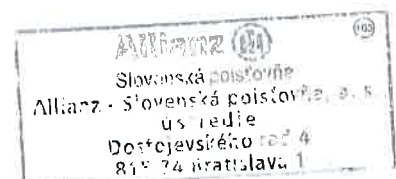 Allianz 103
Slovenská poisťovňa
Allianz - Slovenská poisťovňa, a. s.
ústredie
Dostojevského rad 4
815 74 Bratislava 1